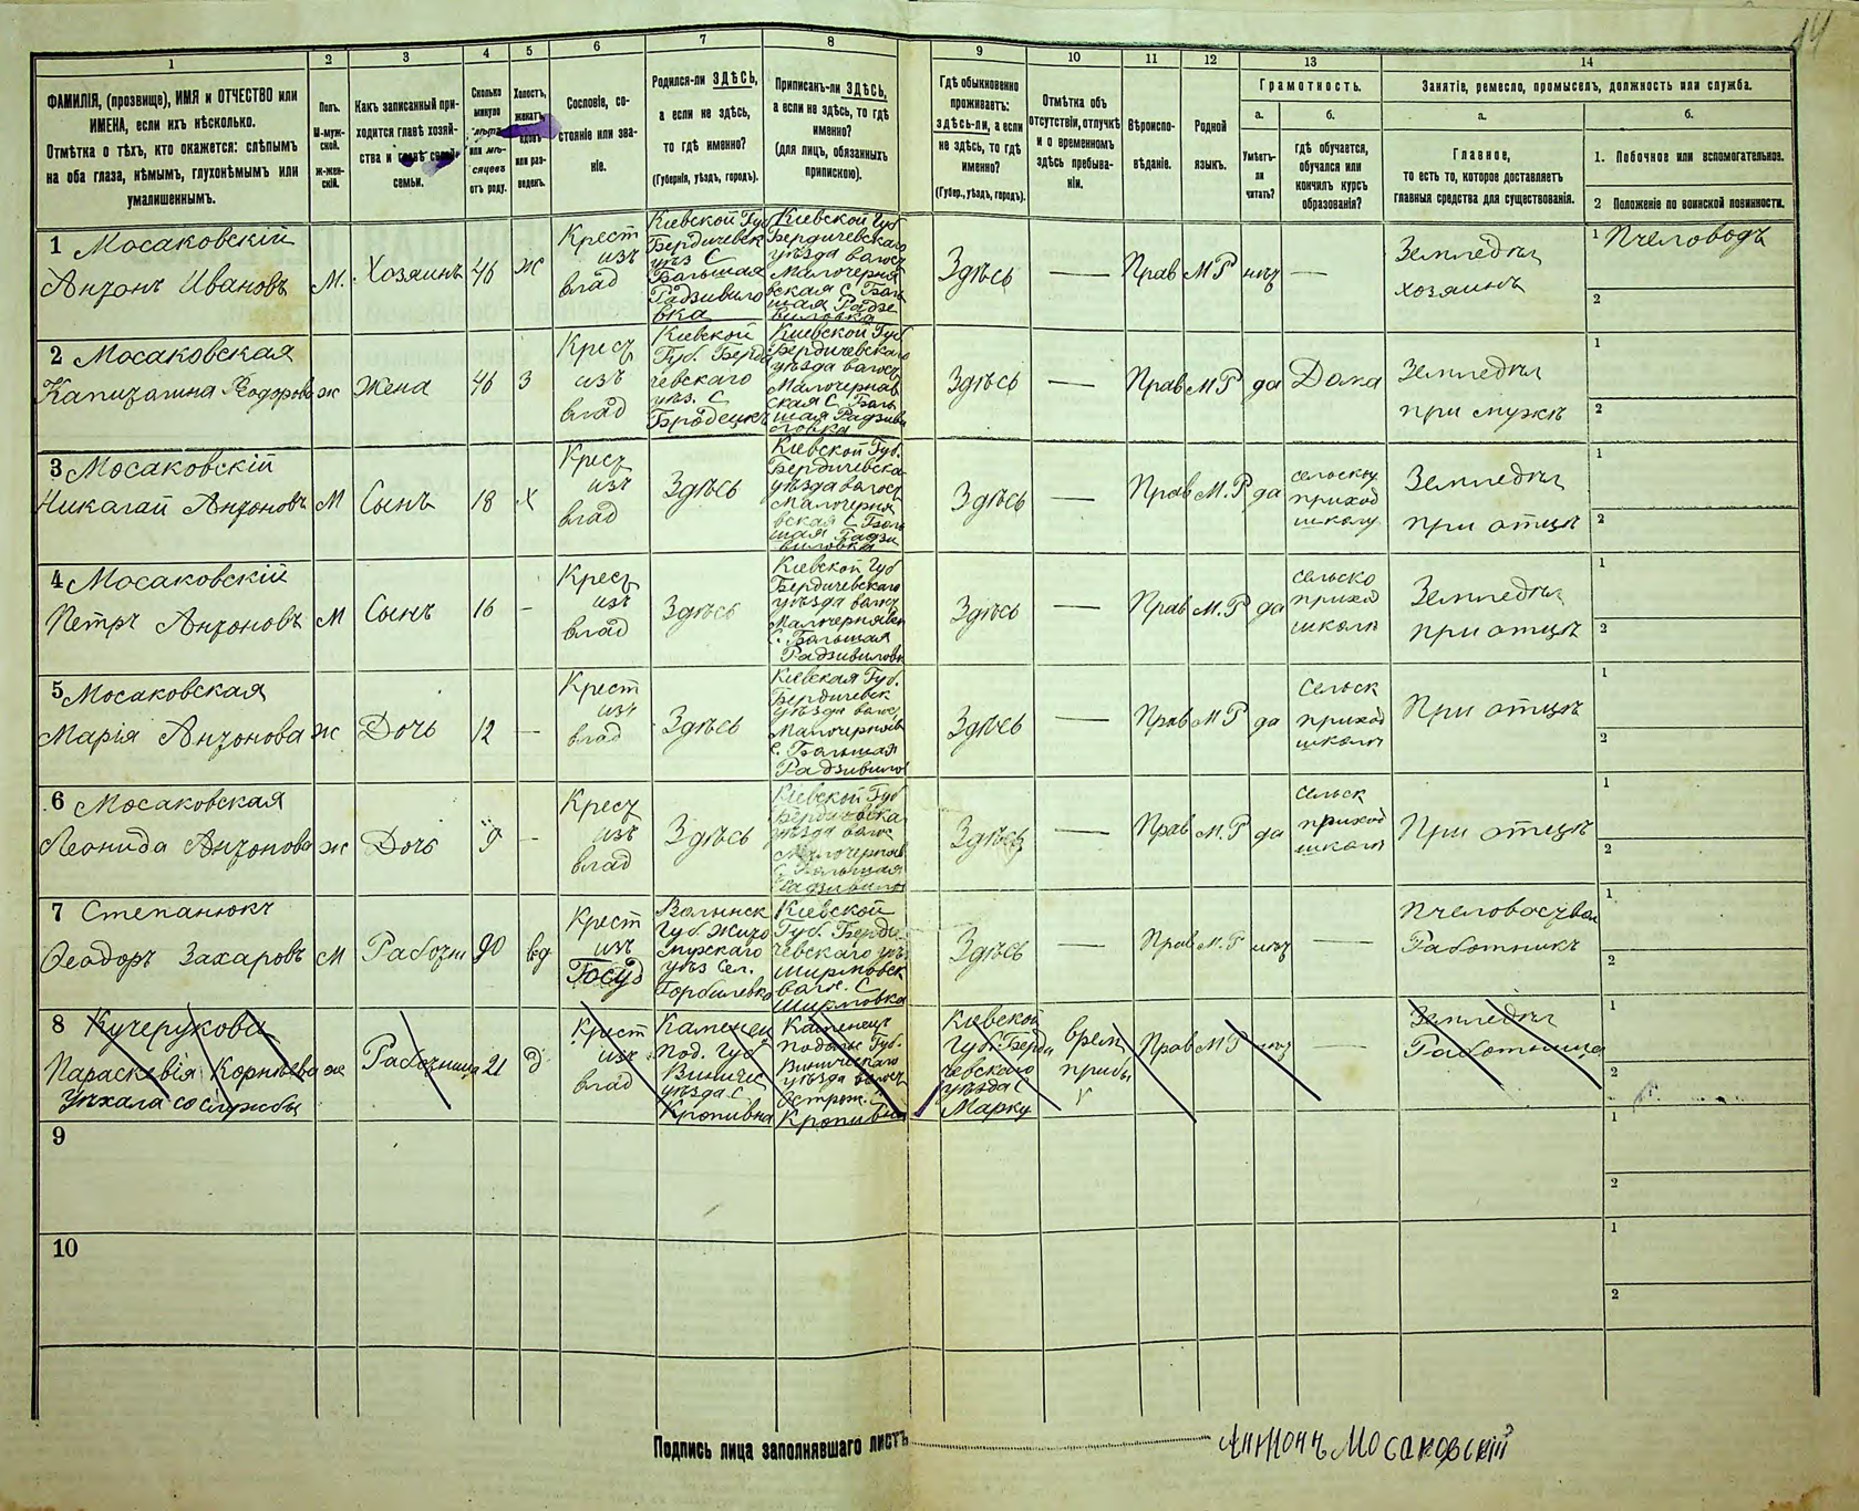 14
1
2
3
4
5
6
7
8
9
10
11
12
13
14
ФАМИЛІЯ, (прозвище), ИМЯ и ОТЧЕСТВО или
ИМЕНА, если ихъ нѣсколько.
Отмѣтка о тѣхъ, кто окажется: слѣпымъ
на оба глаза, нѣмымъ, глухонѣмымъ или
умалишеннымъ.
Полъ.
М-муж-
ской.
ж-жен-
скій.
Какъ записанный при-
ходится главѣ хозяй-
ства и главѣ своей
семьи.
Сколько
минуло
лѣтъ
или мѣ-
сяцевъ
отъ роду.
Холостъ,
женатъ,
вдовъ
или раз-
веденъ.
Сословіе, со-
стояніе или зва-
ніе.
Родился-ли ЗДѢСЬ,
а если не здѣсь,
то гдѣ именно?
(Губернія, уѣздъ, городъ).
Приписанъ-ли ЗДѢСЬ,
а если не здѣсь, то гдѣ
именно?
(для лицъ, обязанныхъ
припискою).
Гдѣ обыкновенно
проживаетъ:
здѣсь-ли, а если
не здѣсь, то гдѣ
именно?
(Губер., уѣздъ, городъ).
Отмѣтка объ
отсутствіи, отлучкѣ
и о временномъ
здѣсь пребыва-
ніи.
Вѣроиспо-
вѣданіе.
Родной
языкъ.
Грамотность.
а.
Умѣетъ-
ли
читать?
б.
гдѣ обучается,
обучался или
кончилъ курсъ
образованія?
Занятіе, ремесло, промыселъ, должность или служба.
а.
Главное,
то есть то, которое доставляетъ
главныя средства для существованія.
б.
1. Побочное или вспомогательное.
2 Положеніе по воинской повинности.
1 Мосаковскій
Антонъ Ивановъ
М.
Хозяинъ
46
ж
Крест
изъ
влад
Кіевской Губ
Бердичевск
уѣз С
Большая
Радзивило
вка
Кіевской Губ
Бердичевскаго
уѣзда волост
Малочерня
вская С. Боль
шая Радзи
виловка
Здѣсь
—
Прав
М Р
нѣт
—
Земледѣл
хозяинъ
1 Пчеловодъ
2
2 Мосаковская
Капитолина Ѳеодорова
ж
Жена
46
З
Крест
изъ
влад
Кіевской
Губ. Берди
чевскаго
уѣз. С
Бродецкъ
Киевской Губ
Бердичевскаго
уѣзда волост
Малочерняв
ская С. Боль
шая Радзиви
ловка
Здѣсь
—
Прав
М Р
да
Дома
Земледѣл
при мужѣ
1
2
3 Мосаковскій
Николай Антоновъ
М
Сынъ
18
Х
Крест
изъ
влад
Здѣсь
Кіевской Губ.
Бердичевска
уѣзда волост
Малочерня
вская С. Боль
шая Радзи
виловка
Здѣсь
—
Прав
М. Р
да
приход
школу
Земледѣл
при отцѣ
1
2
4 Мосаковскій
Петръ Антоновъ
М
Сынъ
16
-
Крест
изъ
влад
Здѣсь
Кіевской Губ
Бердичевскаго
уѣзда волост
Малочернявск
С. Большая
Радзивиловк
Здѣсь
—
Прав
М. Р
да
сельско
приход
школѣ
Земледѣл
при отцѣ
1
2
5 Мосаковская
Марія Антонова
ж
Дочь
12
—
Крест
изъ
влад
Здѣсь
Кіевская Губ.
Бердичевск
уѣзда волос
Малочерняв
с. Большая
Радзивило
Здѣсь
—
Прав
М Р
да
Сельск
приход
школѣ
При отцѣ
1
2
6 Мосаковская
Леонида Антонова
ж
Дочь
9
-
Крест
изъ
влад
Здѣсь
Кіевской Губ
Бердичевска
уѣзда волос
Малочерняв
С. Большая
Радзивило
Здѣсь
—
Прав
М. Р
да
сельск
приход
школѣ
При отцѣ
1
2
7 Степанюкъ
Ѳеодоръ Захаровъ
М
90
вд
Крест
изъ
Госуд
Волынск
Губ Жито
мирскаго
уѣз Сел.
Горбилевка
Кіевской
Губ. Берди
чевскаго уѣз
ширмовск
вол. С
Ширмовка
Здѣсь
—
Прав
М. Р
нѣт
—
Работникъ
1
2
8 Кучерукова
Параскевія Корнѣева
Уѣхала со службы
ж
Работница
21
д
Крест
изъ
влад
Каменец
Под. Губ
Винниц
уѣзда С
Кропивна
Каменецъ
Подольс Губ.
Винницкаго
уѣзда волост
Кропивна
Кіевской
Губ Берди
чевскаго
уѣзда С
Марку
врем
прибы
Прав
М Р
нѣт
—
Земледѣл
Работница
1
2
9
1
2
10
1
2
Подпись лица заполнявшаго листъ
Антонъ Мосаковскій